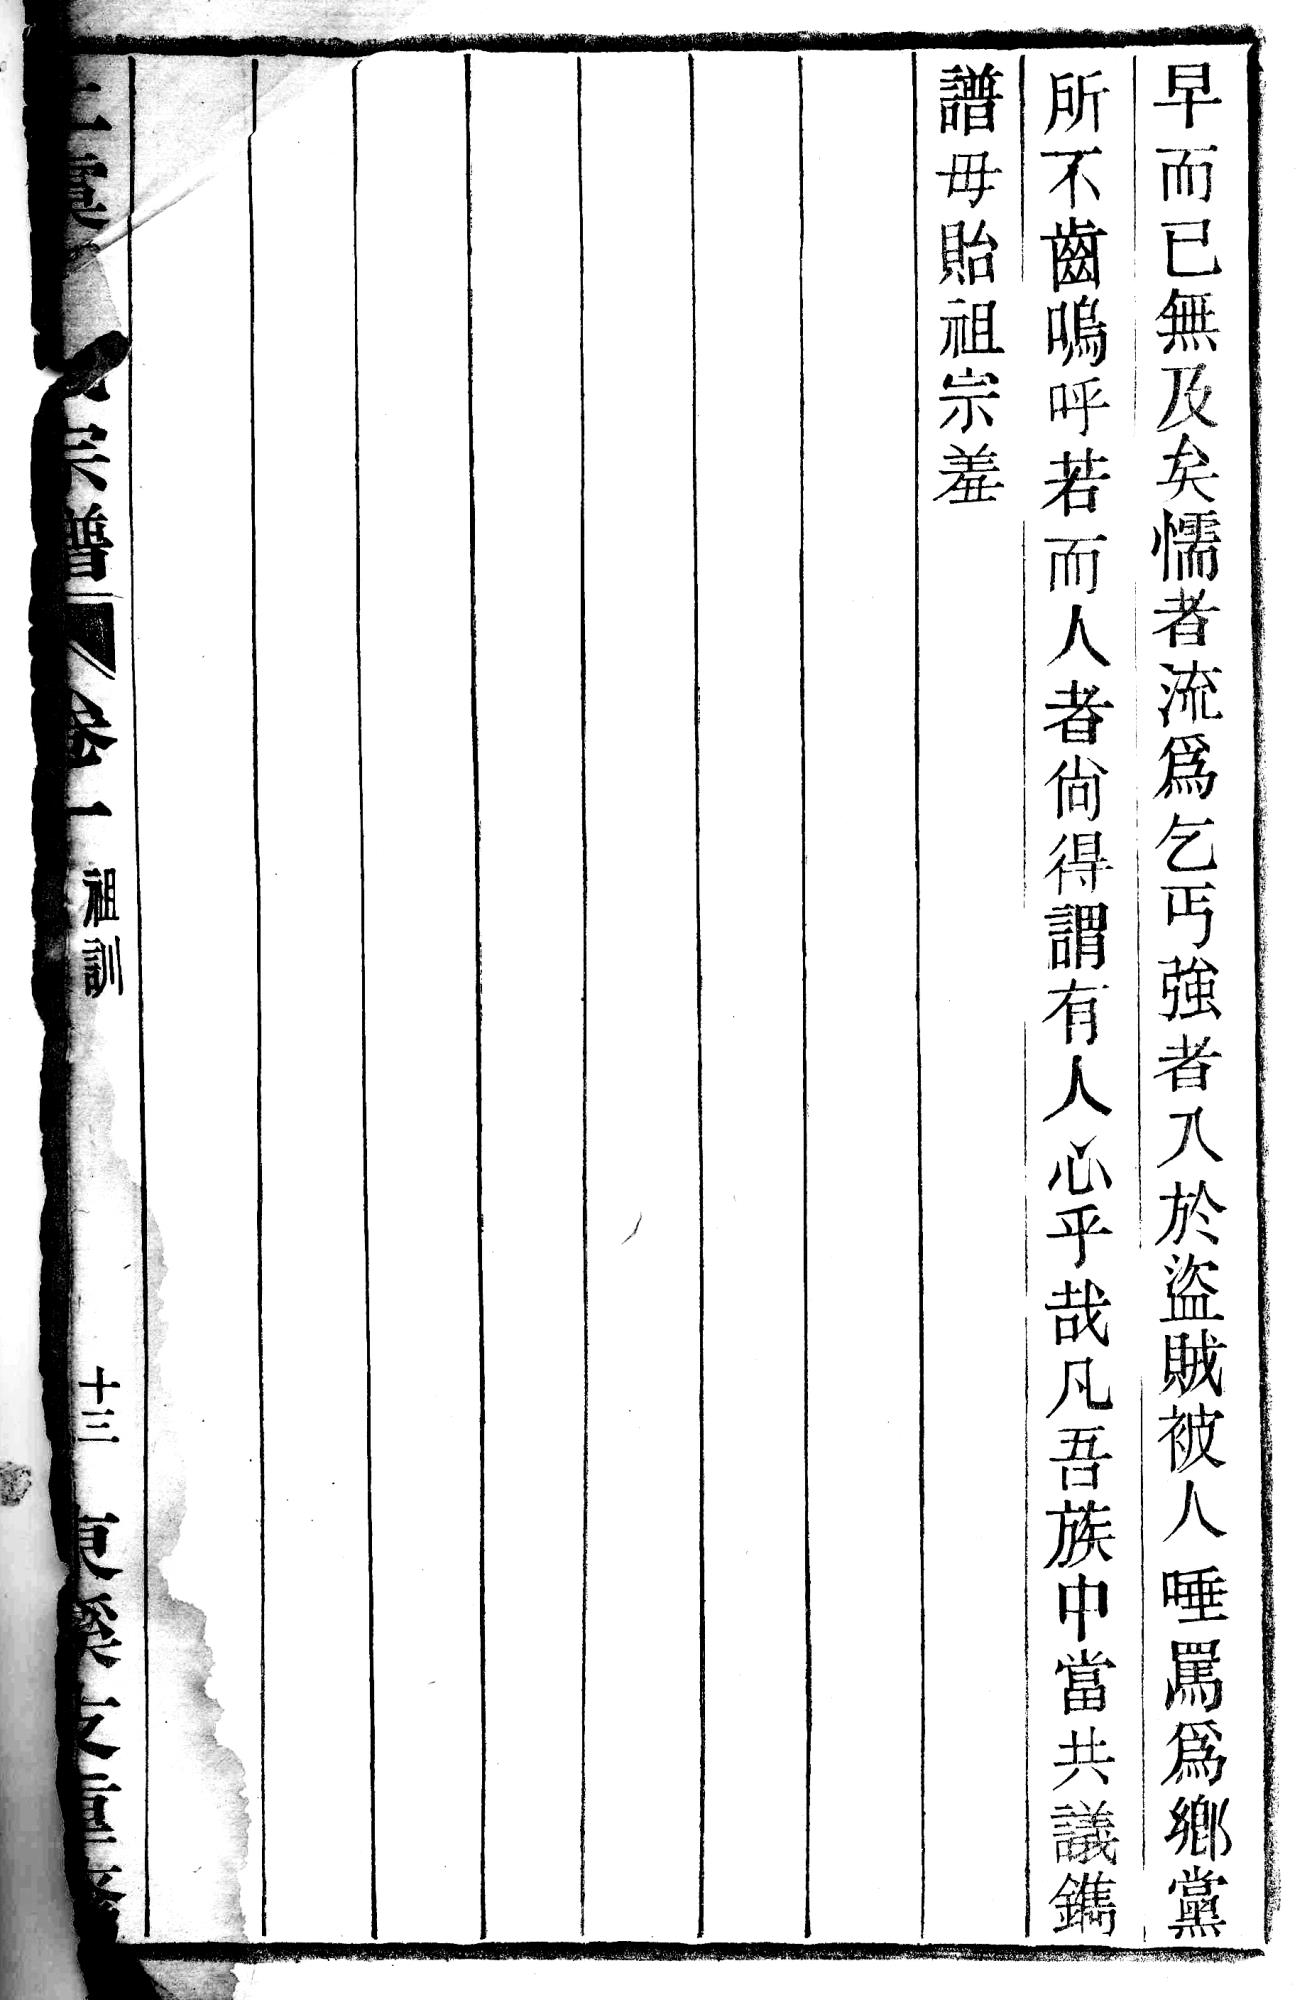 早而已無及矣懦者流爲乞丐強者入於盜賊被人唾罵爲鄉黨
所不齒嗚呼若而人者尙得謂有人心乎哉凡吾族中當共議鐫
譜毋貽祖宗羞
上虞
宗譜
卷一
祖訓
十三
東溪